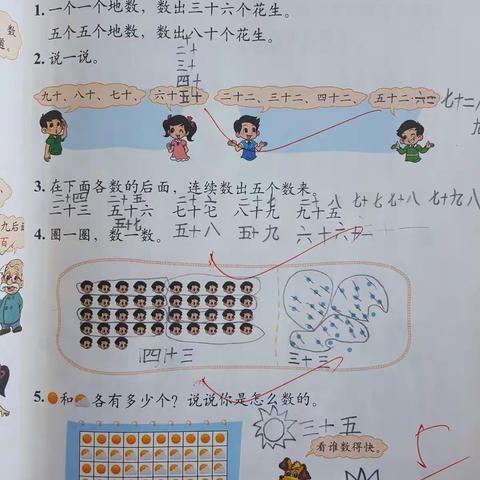 数
道。
1. 一个一个地数，数出三十六个花生。
五个五个地数，数出八十个花生。
2. 说一说。
二十
三十
四十
九十、八十、七十、
六十 五十
二十二、三十二、四十二、
五十二 六二
七十二
3. 在下面各数的后面，连续数出五个数来。
二十四 二十五
二十三 五十六 七十七 八十九 九十五
五十七 五十八 五十九 六十
4. 圈一圈，数一数。
九后面
百
四十三
三十三
5. 和 各有多少个？说说你是怎么数的。
三十五
看谁数得快。